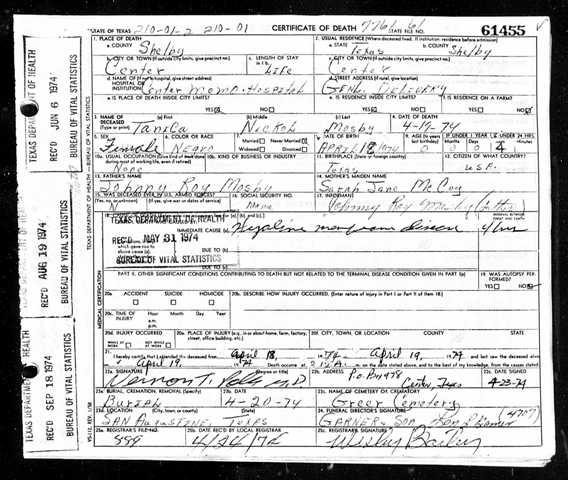 STATE OF TEXAS 210-01-2 210-01 CERTIFICATE OF DEATH 7761 61 61455
1. PLACE OF DEATH 2. USUAL RESIDENCE (Where deceased lived. If institution: residence before admission)
a. COUNTY Shelby a. STATE Texas b. COUNTY Shelby
b. CITY OR TOWN (If outside city limits, give precinct no.) c. LENGTH OF STAY c. CITY OR TOWN (If outside city limits, give precinct no.)
Center Life Center
d. NAME OF (If not in hospital, give street address) d. STREET ADDRESS (If rural, give location)
HOSPITAL OR INSTITUTION Center Memo. Hospital Genl Delivery
e. IS PLACE OF DEATH INSIDE CITY LIMITS? YES NO e. IS RESIDENCE INSIDE CITY LIMITS? YES NO f. IS RESIDENCE ON A FARM? YES NO
3. NAME OF DECEASED (Type or print) (a) First (b) Middle (c) Last 4. DATE OF DEATH
Tanica Nickol Mosby 4-19-74
5. SEX 6. COLOR OR RACE 7. Married Never Married Widowed Divorced 8. DATE OF BIRTH 9. AGE IF UNDER 1 YEAR IF UNDER 24 HRS.
Female Negro April 18, 1974 0 0 0 4
10a. USUAL OCCUPATION 10b. KIND OF BUSINESS OR INDUSTRY 11. BIRTHPLACE (State or foreign country) 12. CITIZEN OF WHAT COUNTRY?
None Texas USA
13. FATHER'S NAME 14. MOTHER'S MAIDEN NAME
Johnny Roy Mosby Sarah Jane McCoy
15. WAS DECEASED EVER IN U.S. ARMED FORCES? 16. SOCIAL SECURITY NO. 17. INFORMANT
N None Johnny Roy
TEXAS DEPARTMENT OF HEALTH
REC'D MAY 31 1974
BUREAU OF VITAL STATISTICS
IMMEDIATE CAUSE (a) Hyaline membrane disease 4 hrs
DUE TO (b)
DUE TO (c)
PART II. OTHER SIGNIFICANT CONDITIONS CONTRIBUTING TO DEATH BUT NOT RELATED TO THE TERMINAL DISEASE CONDITION GIVEN IN PART I(a) 19. WAS AUTOPSY PERFORMED?
YES NO
20a. ACCIDENT SUICIDE HOMICIDE 20b. DESCRIBE HOW INJURY OCCURRED. (Enter nature of injury in Part I or Part II of Item 18)
20c. TIME OF INJURY Hour Month Day Year
20d. INJURY OCCURRED 20e. PLACE OF INJURY (e.g. in or about home, farm, factory, street, office building, etc.) 20f. CITY, TOWN, OR LOCATION COUNTY STATE
WHILE AT WORK NOT WHILE AT WORK
21. I hereby certify that I attended the deceased from April 18, 1974 to April 19, 1974 and last saw the deceased alive
on April 19, 1974 Death occurred at
22a. SIGNATURE (Degree or title) 22b. ADDRESS 22c. DATE SIGNED
Vernon T. M.D. P.O. Box 479 Center, Texas 4-23-74
23a. BURIAL, CREMATION, REMOVAL (Specify) 23b. DATE 23c. NAME OF CEMETERY OR CREMATORY
Burial 4-20-74 Greer Cemetery
23d. LOCATION (City, town, or county) (State) 24. FUNERAL DIRECTOR'S SIGNATURE
San Augustine, Texas Garner & Son (4707)
25a. REGISTRAR'S FILE NO. 25b. DATE REC'D BY LOCAL REGISTRAR 25c. REGISTRAR'S SIGNATURE
4/24/74 Bailey
TEXAS DEPARTMENT OF HEALTH
REC'D JUN 6 1974
BUREAU OF VITAL STATISTICS
REC'D AUG 19 1974
BUREAU OF VITAL STATISTICS
TEXAS DEPARTMENT OF HEALTH
REC'D SEP 18 1974
BUREAU OF VITAL STATISTICS
TEXAS DEPARTMENT OF HEALTH — BUREAU OF VITAL STATISTICS
MEDICAL CERTIFICATION